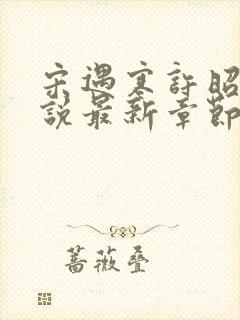 宋遇寒許昭
說最新章節
薔薇疊